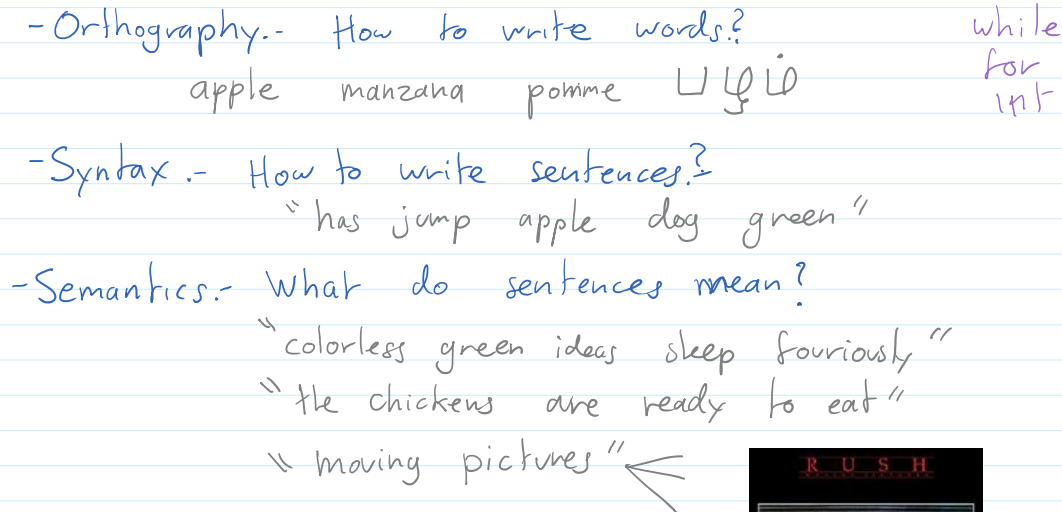 -Orthography.- How to write words? while
apple manzana pomme பழம் for
int
-Syntax.- How to write sentences?
"has jump apple dog green"
-Semantics.- What do sentences mean?
"colorless green ideas sleep fouriously"
"the chickens are ready to eat"
"moving pictures"
RUSH